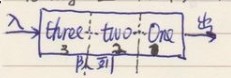 入 three two One 出
3 2 1
队列